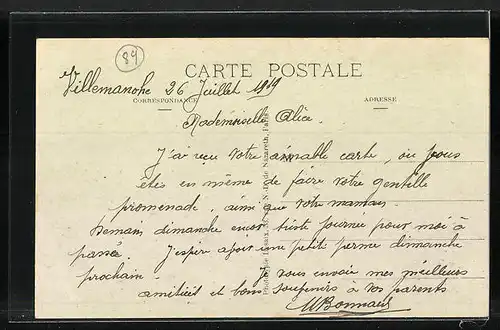 89
CARTE POSTALE
Villemanoche 26 Juillet 1919
CORRESPONDANCE
ADRESSE
Mademoiselle Alice.
J'ai reçu votre aimable carte, où vous
êtes en même de faire votre gentille
promenade, ainsi que votre maman.
Demain dimanche encor triste journée pour moi à
passé. J'espère avoir une petite perme dimanche
prochain - vous envoie mes meilleurs
amitiéet et bons souvenirs à vos parents
MBonnard